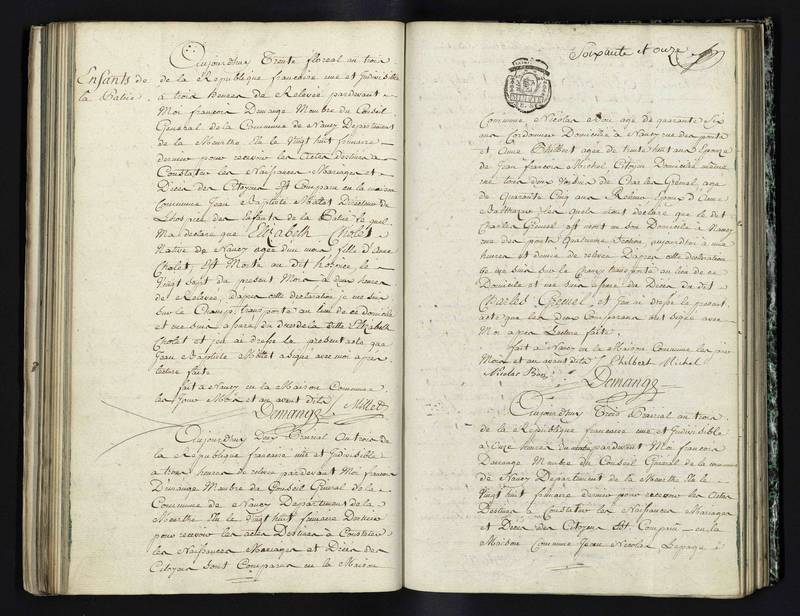 Enfants de
la Patrie.
Aujourdhuy Trente floreal an trois
de la Republique francoise une et Indivisible
a trois heures de Relevée pardevant
Moi francois Demange Membre du Conseil
General de la Commune de Nancy Departement
de la Meurthe Elu le Vingt huit frimaire
dernier pour recevoir les Actes destinés a
Constater les Naissances Mariages et
Décès des Citoyens Est Comparu en la maison
Commune Jean Baptiste Millet Directeur de
Lhospice des Enfants de la Patrie le quel
M'a declaré que Elizabeth Cholet
Native de Nancy agée d'un mois fille d'Anne
Cholet, Est Morte au dit hospice, le
Vingt sept du present Mois a deux heures
de Relevée, d'apres cette declaration je me suis
sur le Champ transporté au lieu de ce domicile
et me suis assuré du deces de la ditte Elizabeth
Cholet et j'ai dressé le present acte que
Jean Baptiste Millet a signé avec moi apres
lecture faite
fait a Nancy en la Maison Commune
les Jour Mois et an avant dits
Demange Millet
Aujourdhuy Deux Prairial an trois de
la Republique francoise une et Indivisible
a trois heures de relevée pardevant Moi francois
Demange Membre du Conseil General de la
Commune de Nancy Departement de la
Meurthe Elu le Vingt huit frimaire Dernier
pour recevoir les actes Destinés à Constater
les Naissances Mariages et Décès des
Citoyens sont Comparus en la Maison
Soixante et onze
Commune Nicolas agé de quarante Six
ans Cordonnier Domicilié a Nancy rue des ponts
et Anne Philbert agée de trente huit ans Epouse
de Jean francois Michel Citoyen Domicilié même
rue tous deux Voisins de Charles Grenel, agé
de Quarante Cinq ans Epoux d'Anne
Balthazar les quels mont declaré que le dit
Charles Grenel est mort en son Domicile a Nancy
rue des ponts quatrieme Section, aujourdhui a une
heure et demie de relevée D'apres cette declaration
je me suis sur le Champ transporté au lieu de ce
Domicile et me suis assuré du Deces du dit
Charles Grenel, et j'en ai dressé le present
acte que les deux Comparans ont signé avec
Moi apres Lecture faite.
fait a Nancy en la Maison Commune les jour
Mois et an avant dits Philbert Michel
Nicolas
Demange
Aujourdhuy Trois Prairial an trois
de la Republique francoise une et Indivisible
a Onze heures du matin pardevant Moi francois
Demange Membre du Conseil Général de la commune
de Nancy Departement de la Meurthe Elu le
Vingt huit frimaire dernier pour recevoir les Actes
Destinés a Constater les Naissances Mariages
et Décès des Citoyens Est Comparu en la
Maison Commune Jean Nicolas Lepage